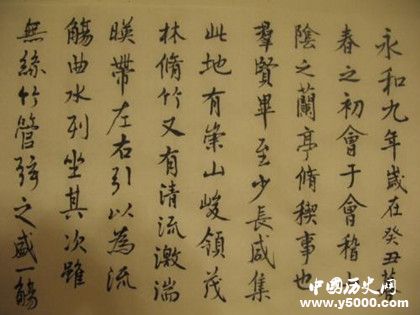 永和九年歲在癸丑暮
春之初會于會稽山
陰之蘭亭脩稧事也
羣賢畢至少長咸集
此地有崇山峻領茂
林脩竹又有清流激湍
暎帶左右引以為流
觴曲水列坐其次雖
無絲竹管弦之盛一觴
中國历史网
www.y5000.com